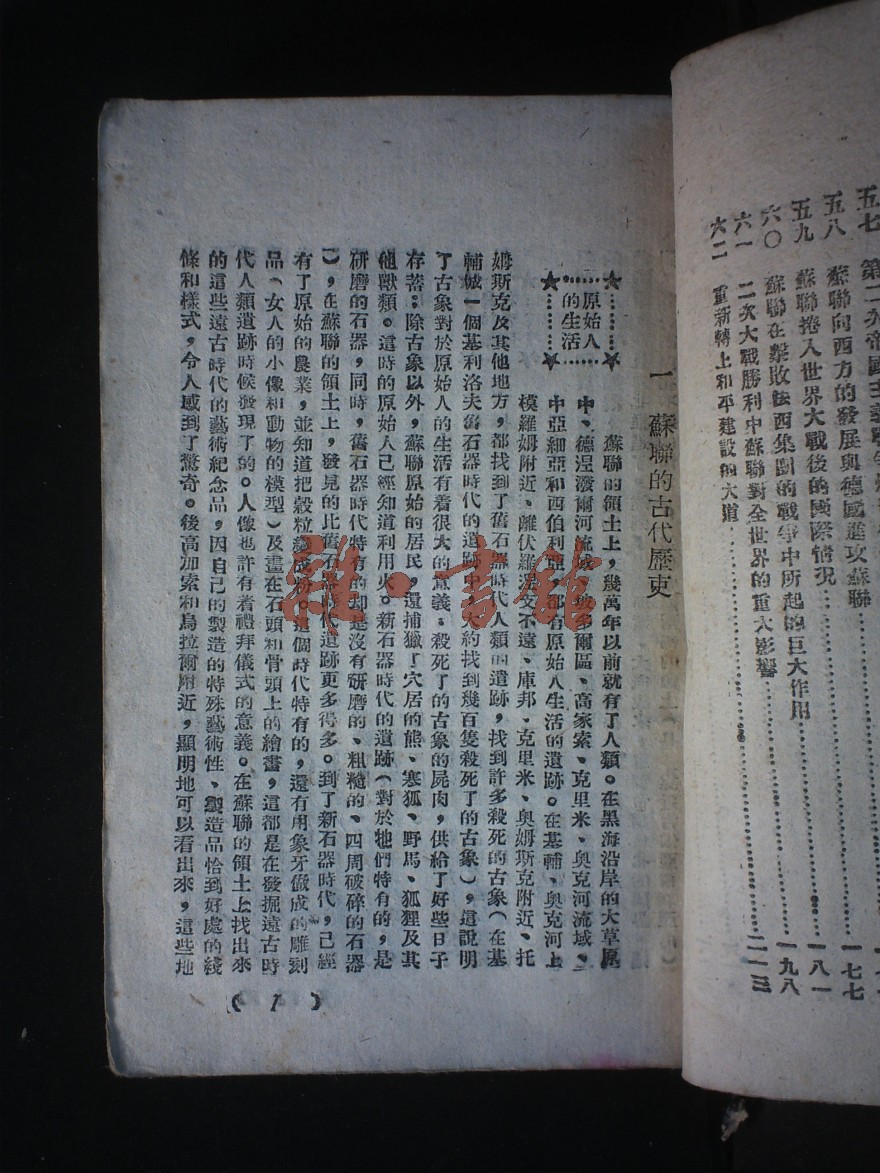 五七 第二次帝國主義戰爭
五八 蘇聯向西方的發展與德國進攻蘇聯
五九 蘇聯捲入世界大戰後的國際情況 一七七
六〇 蘇聯在擊敗法西集團的戰爭中所起的巨大作用 一八一
六一 二次大戰勝利中蘇聯對全世界的重大影響 一九八
六二 重新轉上和平建設的大道 二一三
一 蘇聯的古代歷史
原始人
的生活
蘇聯的領土上,幾萬年以前就有了人類。在黑海沿岸的大草原
中、德涅潑爾河流域、坡多爾區、高家索、克里米、奧克河流域、
中亞細亞和西伯利亞,都有原始人生活的遺跡。在基輔、奧克河上
模羅姆附近、離伏羅涅支不遠、庫邦、克里米、奧姆斯克附近、托
姆斯克及其他地方,都找到了舊石器時代人類的遺跡,找到許多殺死的古象(在基
輔城一個基利洛夫舊石器時代的遺跡中大約找到幾百隻殺死了的古象),這說明
了古象對於原始人的生活有着很大的意義:殺死了的古象的屍肉,供給了好些日子
存蓄;除古象以外,蘇聯原始的居民,還捕獵了穴居的熊、寒狐、野馬、狐狸及其
他獸類。這時的原始人已經知道利用火。新石器時代的遺跡(對於牠們特有的,是
研磨的石器,同時,舊石器時代特有的却是沒有研磨的、粗糙的、四周破碎的石器
),在蘇聯的領土上,發見的比舊石器時代遺跡更多得多。到了新石器時代,已經
有了原始的農業,並知道把穀粒磨成粉。這個時代特有的,還有用象牙做成的雕刻
品(女人的小像和動物的模型)及畫在石頭和骨頭上的繪畫,這都是在發掘遠古時
代人類遺跡時候發現了的。人像也許有着禮拜儀式的意義。在蘇聯的領土上找出來
的這些遠古時代的藝術紀念品,因自己的製造的特殊藝術性、製造品恰到好處的綫
條和樣式,令人感到了驚奇。後高加索和烏拉爾附近,顯明地可以看出來,這些地
(1)
雜·書館